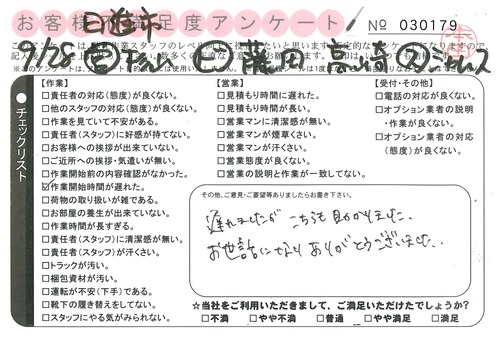 お客様満足度アンケート No 030179
9/28
チェックリスト
【作業】
□責任者の対応(態度)が良くない。
□他のスタッフの対応(態度)が良くない。
□作業を見ていて不安がある。
□責任者(スタッフ)に好感が持てない。
□お客様への挨拶が出来ていない。
□ご近所への挨拶・気遣いが無い。
□作業開始前の内容確認がなかった。
☑作業開始時間が遅れた。
□荷物の取り扱いが雑である。
□お部屋の養生が出来ていない。
□作業時間が長すぎる。
□責任者(スタッフ)に清潔感が無い。
□責任者(スタッフ)が汗くさい。
□トラックが汚い。
□梱包資材が汚い。
□運転が不安(下手)である。
□靴下の履き替えをしてない。
□スタッフにやる気がみられない。
【営業】
□見積もり時間に遅れた。
□見積もり時間が長い。
□営業マンに清潔感が無い。
□営業マンが煙草くさい。
□営業マンが汗くさい。
□営業態度が良くない。
□営業の説明と作業が一致してない。
【受付・その他】
□電話の対応が良くない。
□オプション業者の説明
・作業が良くない。
□オプション業者の対応
(態度)が良くない。
その他、ご意見・ご要望等ありましたらお書き下さい。
遅れましたが こちらも助かりました。
お世話になり ありがとうございました。
☆当社をご利用いただきまして、ご満足いただけたでしょうか?
□不満 □やや不満 □普通 □やや満足 □満足